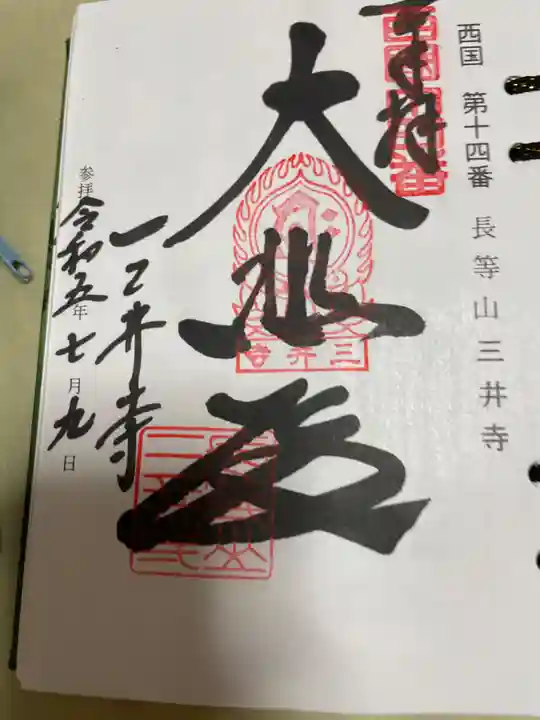 西国 第十四番 長等山三井寺
奉拝
西国十四番
大悲殿
三井寺
三井寺
参拝 令和五年七月九日